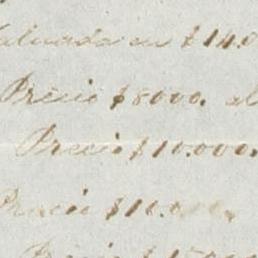 Valuada en $14.0
Precio $8000. al
Precio $10.000.
Precio
Precio